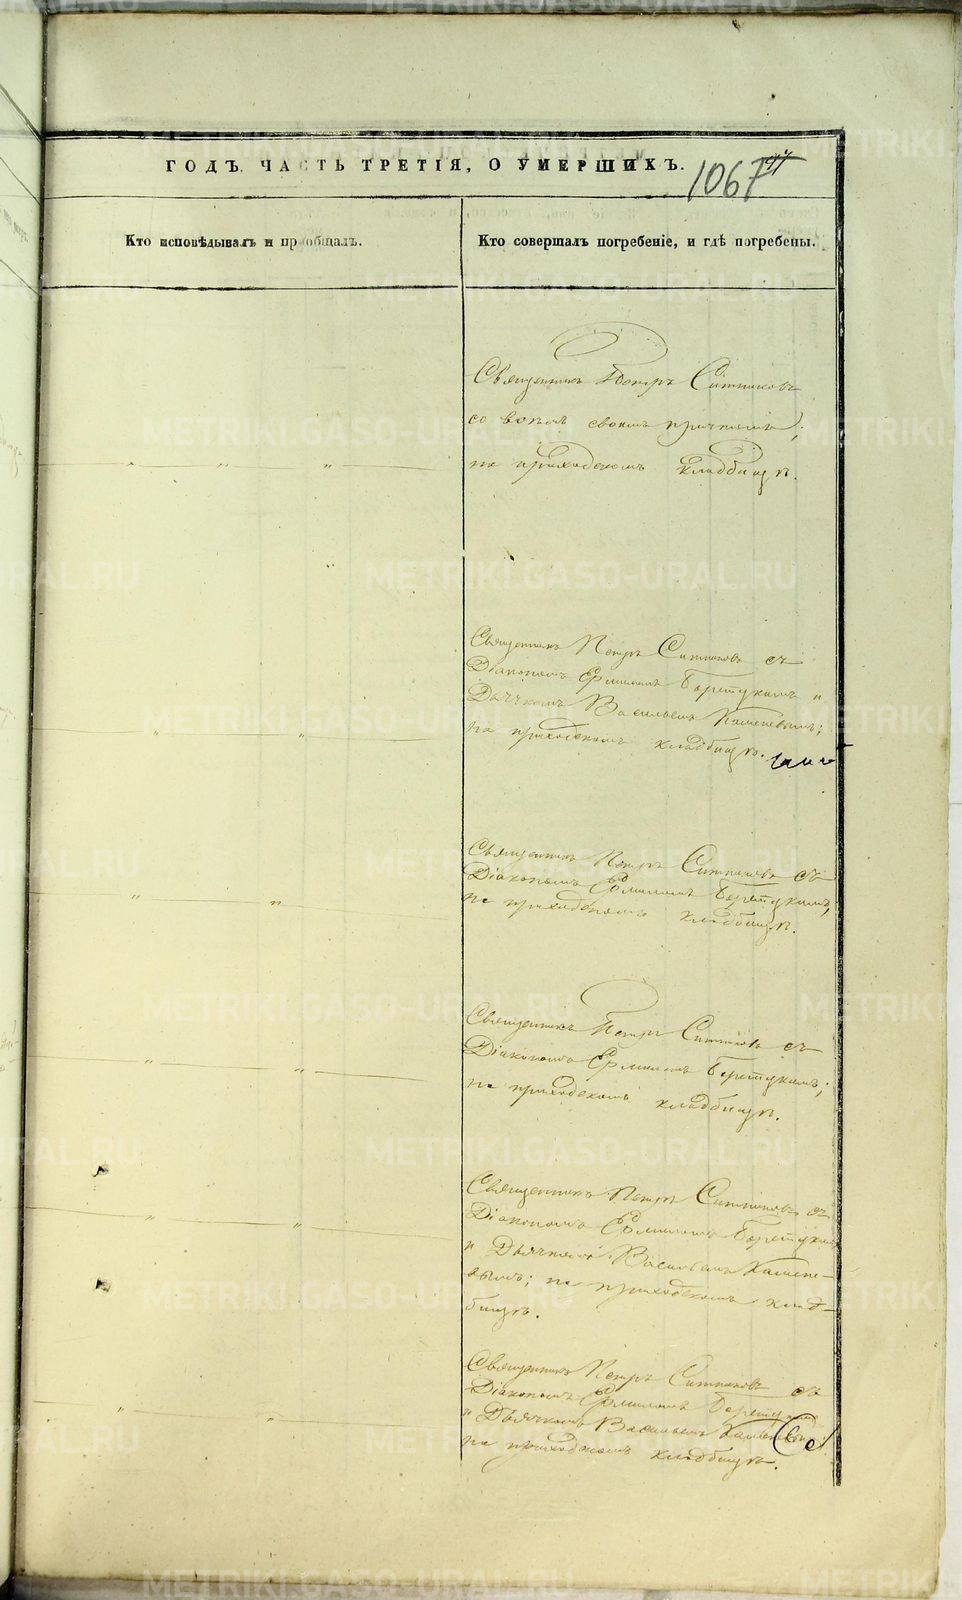 ГОДЪ, ЧАСТЬ ТРЕТІЯ, О УМЕРШИХЪ.
1067
Кто исповѣдывалъ и пріобщалъ.
Кто совершалъ погребеніе, и гдѣ погребены.
Священникъ Петръ Ситниковъ
со всѣмъ своимъ причтомъ;
на приходскомъ кладбищѣ.
Священникъ Петръ Ситниковъ съ
Діакономъ Ермиломъ и
Дьячкомъ Васильемъ
на приходскомъ кладбищѣ.
Священникъ Петръ Ситниковъ съ
Діакономъ Ермиломъ
на приходскомъ кладбищѣ.
Священникъ Петръ Ситниковъ съ
Діакономъ Ермиломъ
на приходскомъ кладбищѣ.
Священникъ Петръ Ситниковъ съ
Діакономъ Ермиломъ
и Дьячкомъ Васильемъ
на приходскомъ клад-
бищѣ.
Священникъ Петръ Ситниковъ съ
Діакономъ Ермиломъ
и Дьячкомъ Васильемъ
на приходскомъ кладбищѣ.
METRIKI.GASO-URAL.RU